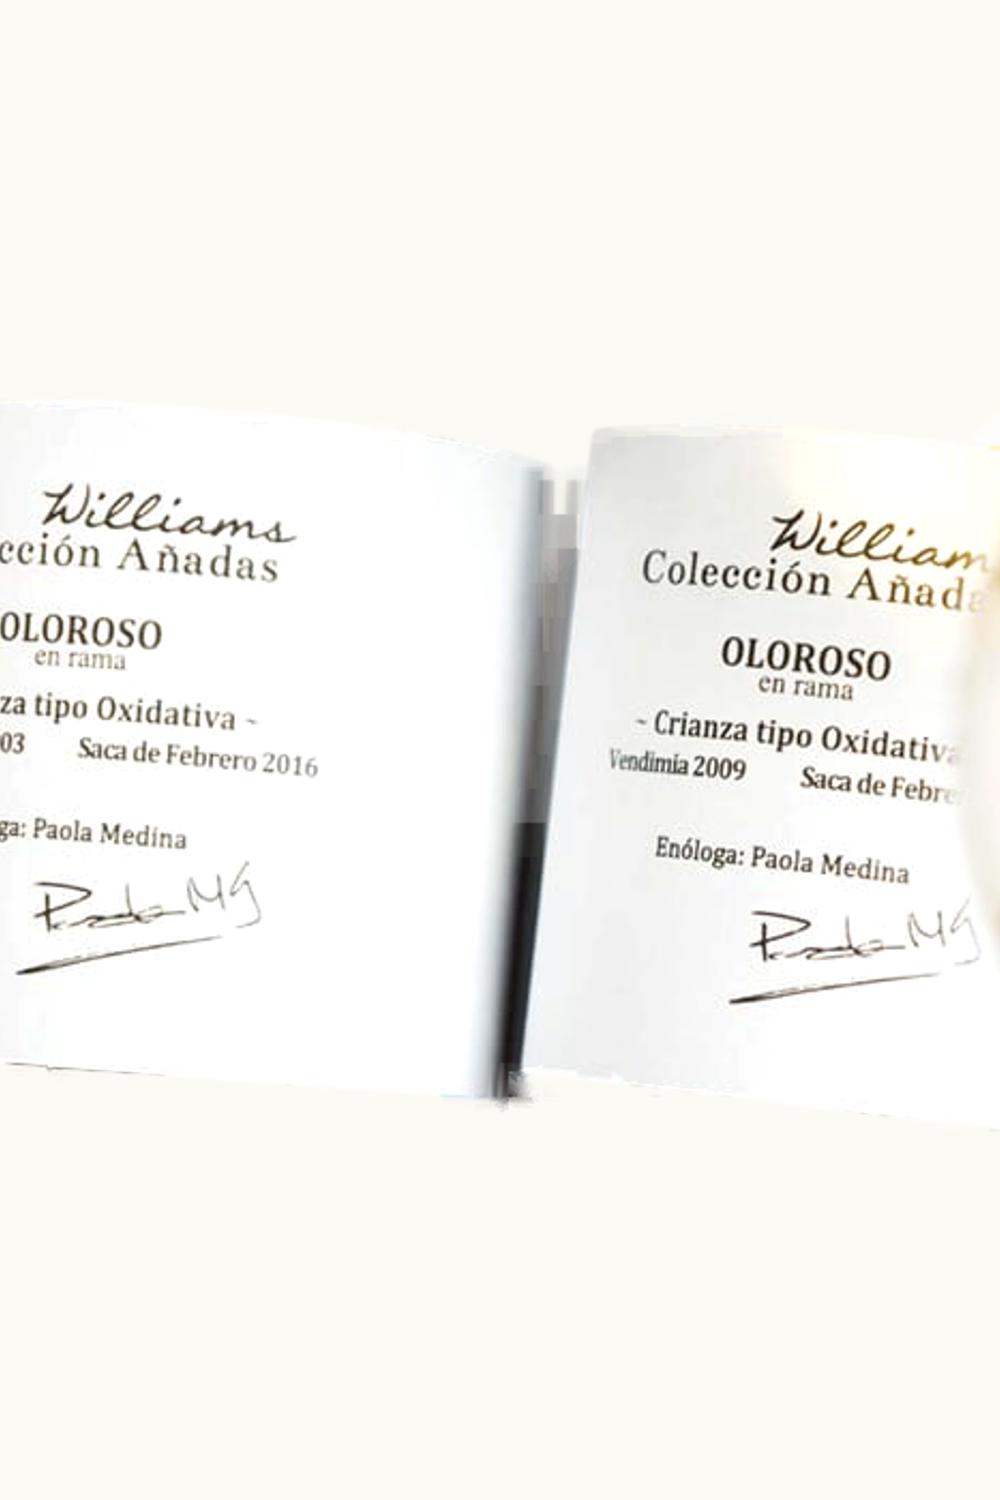 Williams
cción Añadas
OLOROSO
en rama
za tipo Oxidativa ~
03 Saca de Febrero 2016
ga: Paola Medina
William
Colección Añada
OLOROSO
en rama
~ Crianza tipo Oxidativa
Vendimia 2009 Saca de Febre
Enóloga: Paola Medina